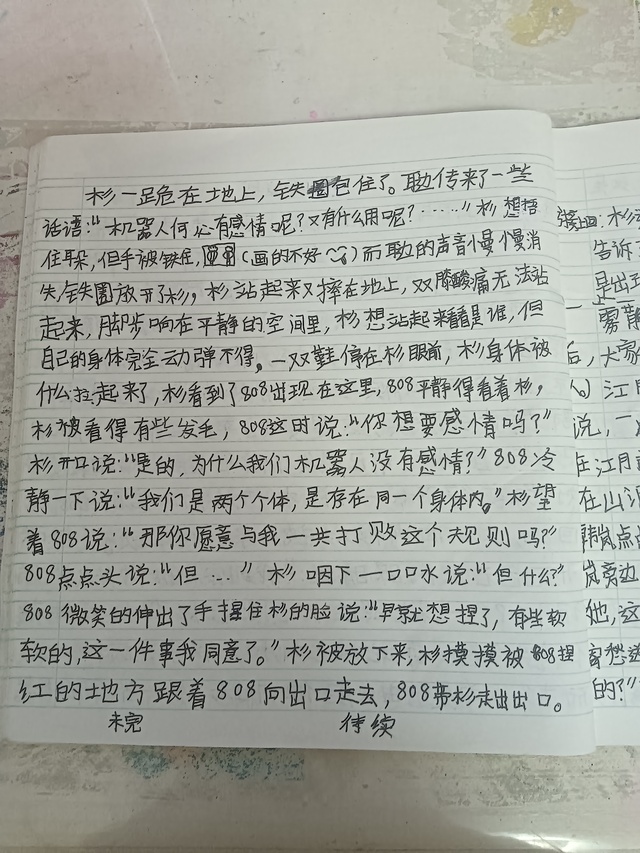 杉一跪在地上，铁圈包住了。耳边传来了一些
话语：“机器人何必有感情呢？又有什么用呢？……”杉想捂
住耳朵，但手被铁住，（画的不好）而耳边的声音慢慢消
失，铁圈放开了杉，杉站起来又摔在地上，双膝酸痛无法站
起来，脚步响在平静的空间里，杉想站起来看是谁，但
自己的身体完全动弹不得。一双鞋停在杉眼前，杉身体被
什么拉起来了，杉看到了808出现在这里，808平静得看着杉，
杉被看得有些发毛，808这时说：“你想要感情吗？”
杉开口说：“是的，为什么我们机器人没有感情？”808冷
静一下说：“我们是两个个体，是存在同一个身体内。”杉望
着808说：“那你愿意与我一共打败这个规则吗？”
808点点头说：“但…”杉咽下一口口水说：“但什么？”
808微笑的伸出了手捏住杉的脸说：“早就想捏了，有些软
软的，这一件事我同意了。”杉被放下来，杉摸摸被808捏
红的地方跟着808向出口走去，808带杉走出出口。
未完 待续
接上回：杉
告诉
是出
雾
后，大家
江月
说，一
在江月
在山
点点
岚旁边
她，这
的？”